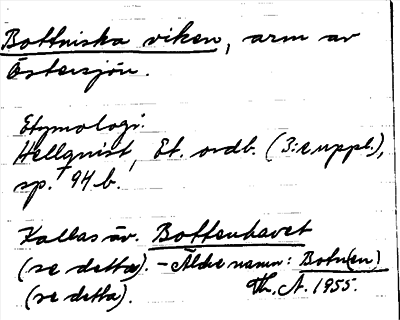 Bottniska viken, arm av
Östersjön.
Etymologi:
Hellquist, Et. ordb. (3:e uppl.),
sp. 94 b.
Kallas äv. Bottenhavet
(se detta). - Äldre namn: Botn(en)
(se detta). Th. A. 1955.